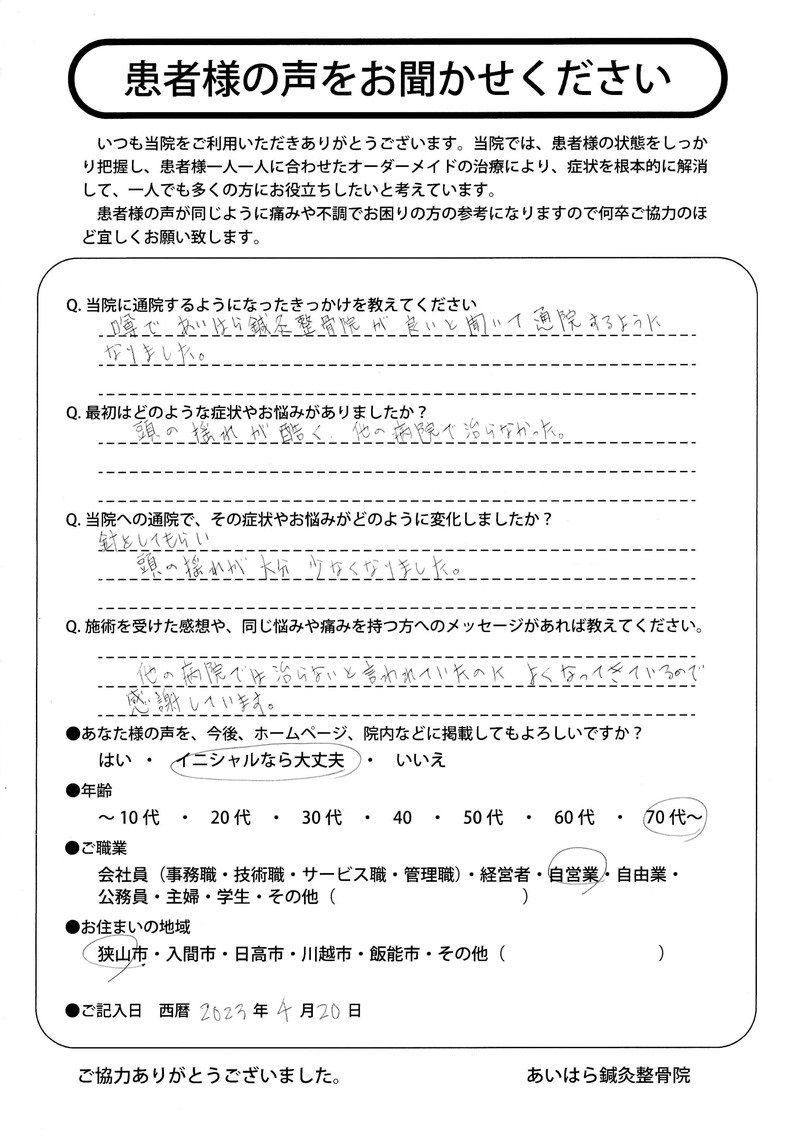 患者様の声をお聞かせください
いつも当院をご利用いただきありがとうございます。当院では、患者様の状態をしっか
り把握し、患者様一人一人に合わせたオーダーメイドの治療により、症状を根本的に解消
して、一人でも多くの方にお役立ちしたいと考えています。
患者様の声が同じように痛みや不調でお困りの方の参考になりますので何卒ご協力のほ
ど宜しくお願い致します。
Q. 当院に通院するようになったきっかけを教えてください
噂で あいはら鍼灸整骨院が 良いと聞いて 通院するように
なりました。
Q. 最初はどのような症状やお悩みがありましたか?
頭の 揺れが 酷く、他の病院で治らなかった。
Q. 当院への通院で、その症状やお悩みがどのように変化しましたか?
針をしてもらい
頭の揺れが 大分 少なくなりました。
Q. 施術を受けた感想や、同じ悩みや痛みを持つ方へのメッセージがあれば教えてください。
他の病院では治らないと言われていたのに よくなってきているので
感謝しています。
●あなた様の声を、今後、ホームページ、院内などに掲載してもよろしいですか?
はい ・ イニシャルなら大丈夫 ・ いいえ
●年齢
~10代 ・ 20代 ・ 30代 ・ 40 ・ 50代 ・ 60代 ・ 70代~
●ご職業
会社員(事務職・技術職・サービス職・管理職)・経営者・自営業・自由業・
公務員・主婦・学生・その他( )
●お住まいの地域
狭山市・入間市・日高市・川越市・飯能市・その他( )
●ご記入日 西暦 2023 年 4 月 20 日
ご協力ありがとうございました。 あいはら鍼灸整骨院